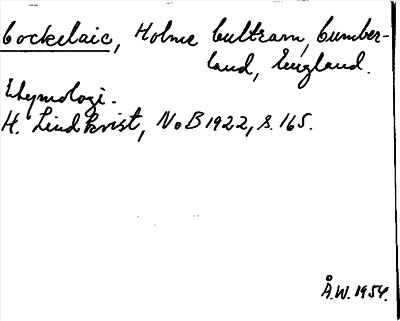 Cockelaic, Holme Cultram, Cumber-
land, England.
Etymologi.
H. Lindkvist, NoB 1922, s. 165.
Å.W. 1954.